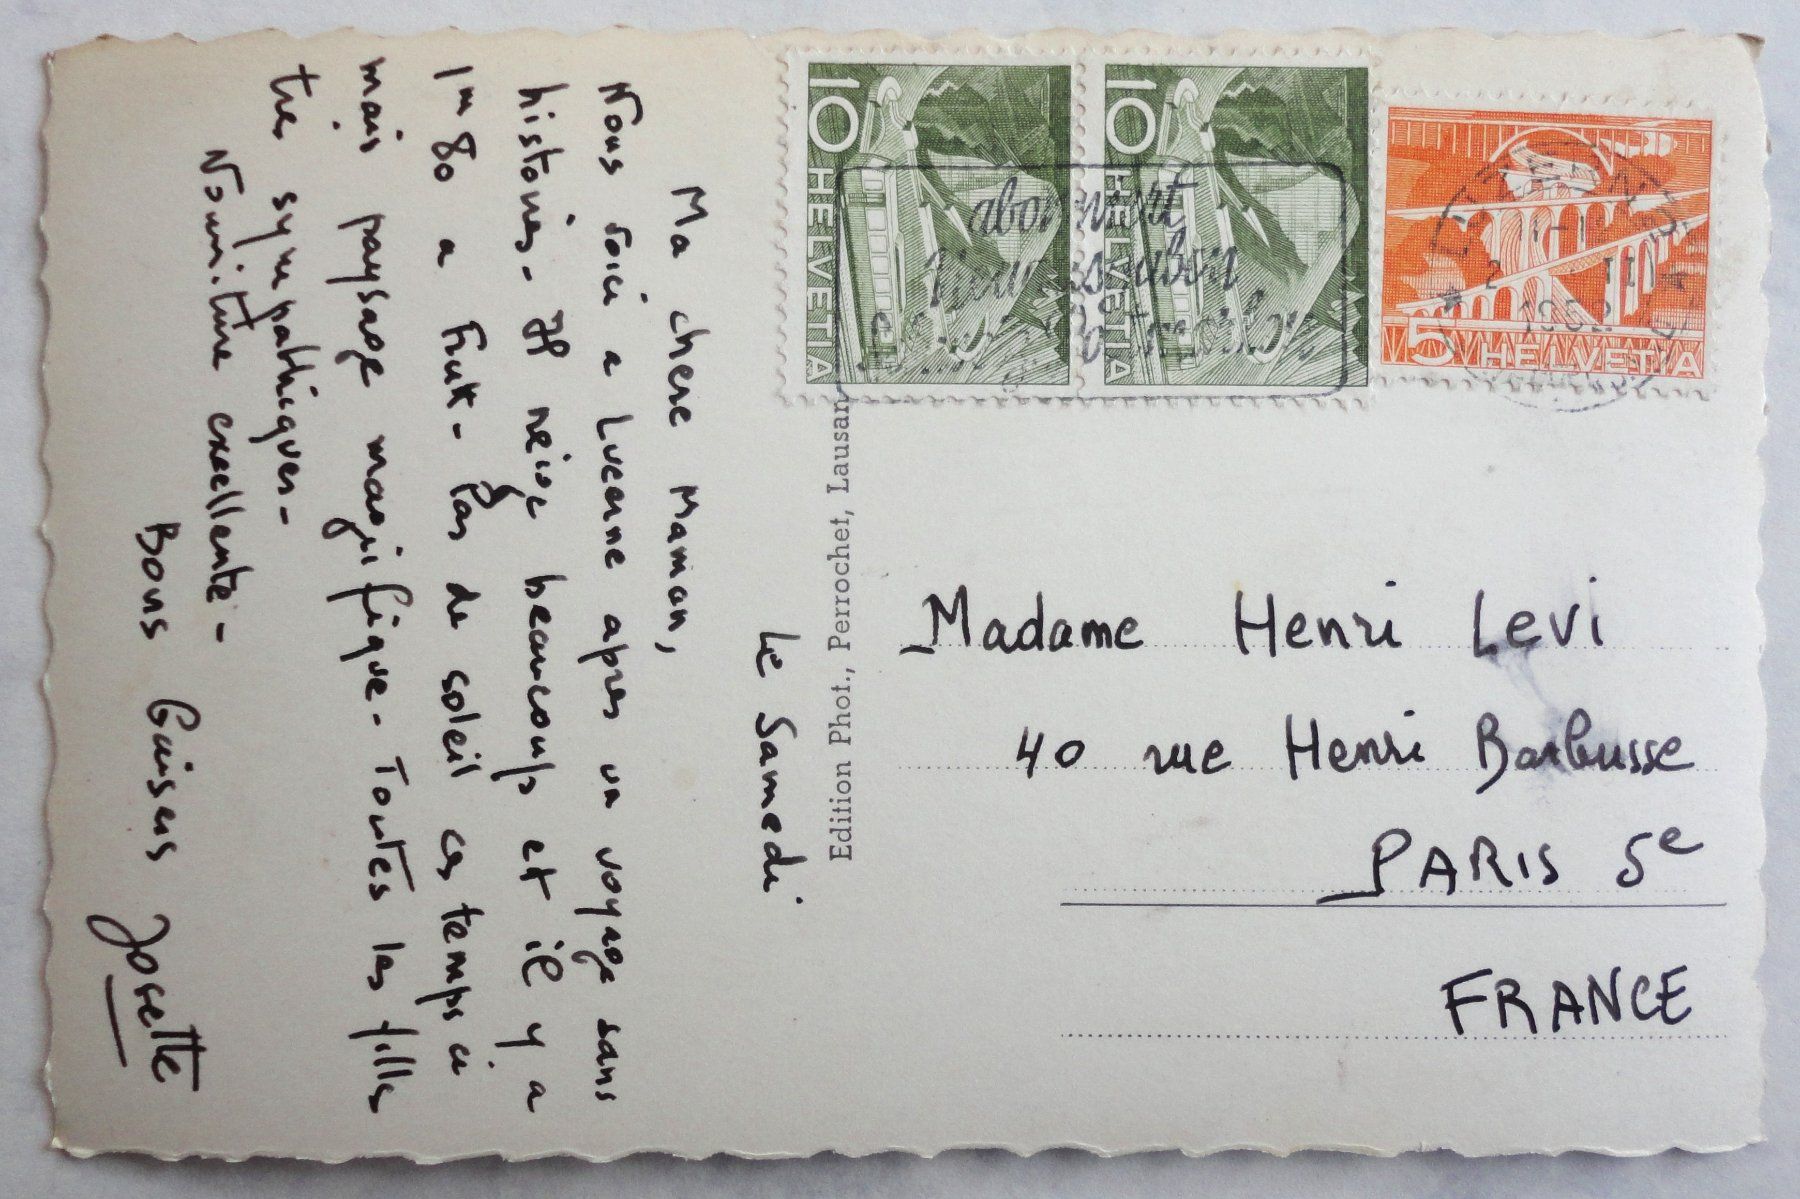 Le Samedi
Ma chere Maman,
Nous voici a Lucerne apres un voyage sans
histoires - Il neige beaucoup et il y a
1m 80 a Frutt - Pas de soleil ces temps ci
mais paysage magnifique - Toutes les filles
tres sympathiques -
Nourriture excellente -
Bons Baisers
Josette
Edition Phot., Perrochet, Lausan
10
HELVETIA
10
HELVETIA
5 HELVETIA
abonniert
1952
Madame Henri Levi
40 rue Henri Barbusse
PARIS 5e
FRANCE